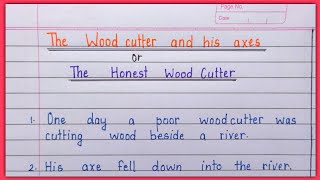 Page No.
Date
The Wood cutter and his axes
or
The Honest Wood Cutter
1. One day a poor woodcutter was
cutting wood beside a river.
2. His axe fell down into the river.